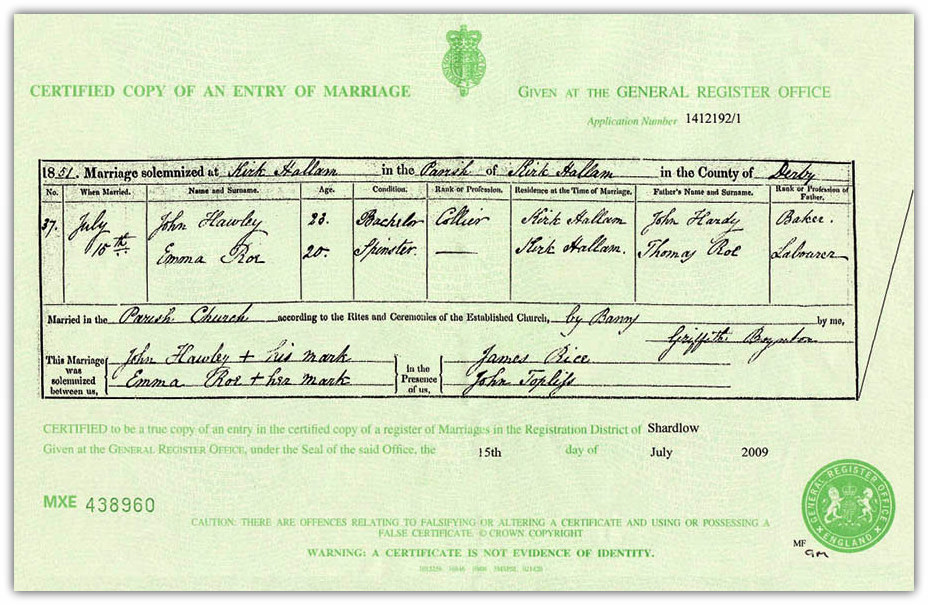 CERTIFIED COPY OF AN ENTRY OF MARRIAGE
GIVEN AT THE GENERAL REGISTER OFFICE
Application Number 1412192/1
1851. Marriage solemnized at Kirk Hallam in the Parish of Kirk Hallam in the County of Derby
No. When Married. Name and Surname. Age. Condition. Rank or Profession. Residence at the Time of Marriage. Father's Name and Surname. Rank or Profession of Father.
37. July John Hawley 23. Bachelor Collier Kirk Hallam John Hardy Baker.
15th Emma Roe 20. Spinster. — Kirk Hallam. Thomas Roe Labourer
Married in the Parish Church according to the Rites and Ceremonies of the Established Church, by Banns by me,
Griffith Boynton
This Marriage was solemnized between us,
John Hawley + his mark
Emma Roe + her mark
in the Presence of us,
James Rice
John Topliss
CERTIFIED to be a true copy of an entry in the certified copy of a register of Marriages in the Registration District of Shardlow
Given at the GENERAL REGISTER OFFICE, under the Seal of the said Office, the 15th day of July 2009
MXE 438960
CAUTION: THERE ARE OFFENCES RELATING TO FALSIFYING OR ALTERING A CERTIFICATE AND USING OR POSSESSING A
FALSE CERTIFICATE. © CROWN COPYRIGHT
WARNING: A CERTIFICATE IS NOT EVIDENCE OF IDENTITY.
GENERAL REGISTER OFFICE
ENGLAND
MF